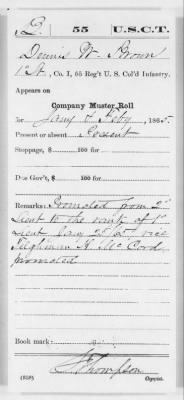 B. 55 U.S.C.T.
Dennis W. Brown
1st Lt., Co. I, 55 Reg't U. S. Col'd Infantry.
Appears on
Company Muster Roll
for Jany & Feby, 1865.
Present or absent Present
Stoppage, $ 100 for
Due Gov't, $ 100 for
Remarks: Promoted from 2d
Lieut to the rank of 1st
Lieut Jany 2d 65 vice
Tilghman H. McCord
promoted
Book mark:
Thompson
(858) Copyist.